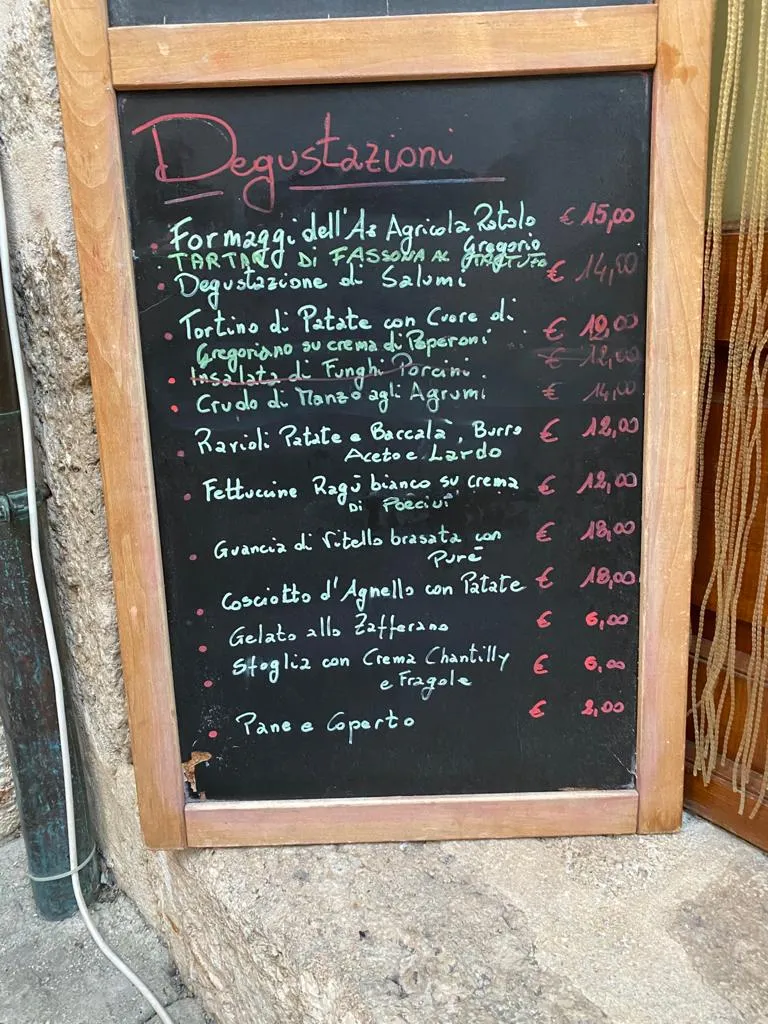 Degustazioni
Formaggi dell'Az Agricola Rotolo € 15,00
Gregorio
TARTAR DI FASSONA AL TARTUFO
Degustazione di Salumi € 14,00
Tortino di Patate con Cuore di € 10,00
Gregoriano su crema di Peperoni
Insalata di Funghi Porcini € 12,00
Crudo di Manzo agli Agrumi € 14,00
Ravioli Patate e Baccalà, Burro € 12,00
Aceto e Lardo
Fettuccine Ragù bianco su crema € 12,00
DI PORCINI
Guancia di Vitello brasata con € 18,00
Purè
Cosciotto d'Agnello con Patate € 18,00
Gelato allo Zafferano € 6,00
Sfoglia con Crema Chantilly € 6,00
e Fragole
Pane e Coperto € 2,00